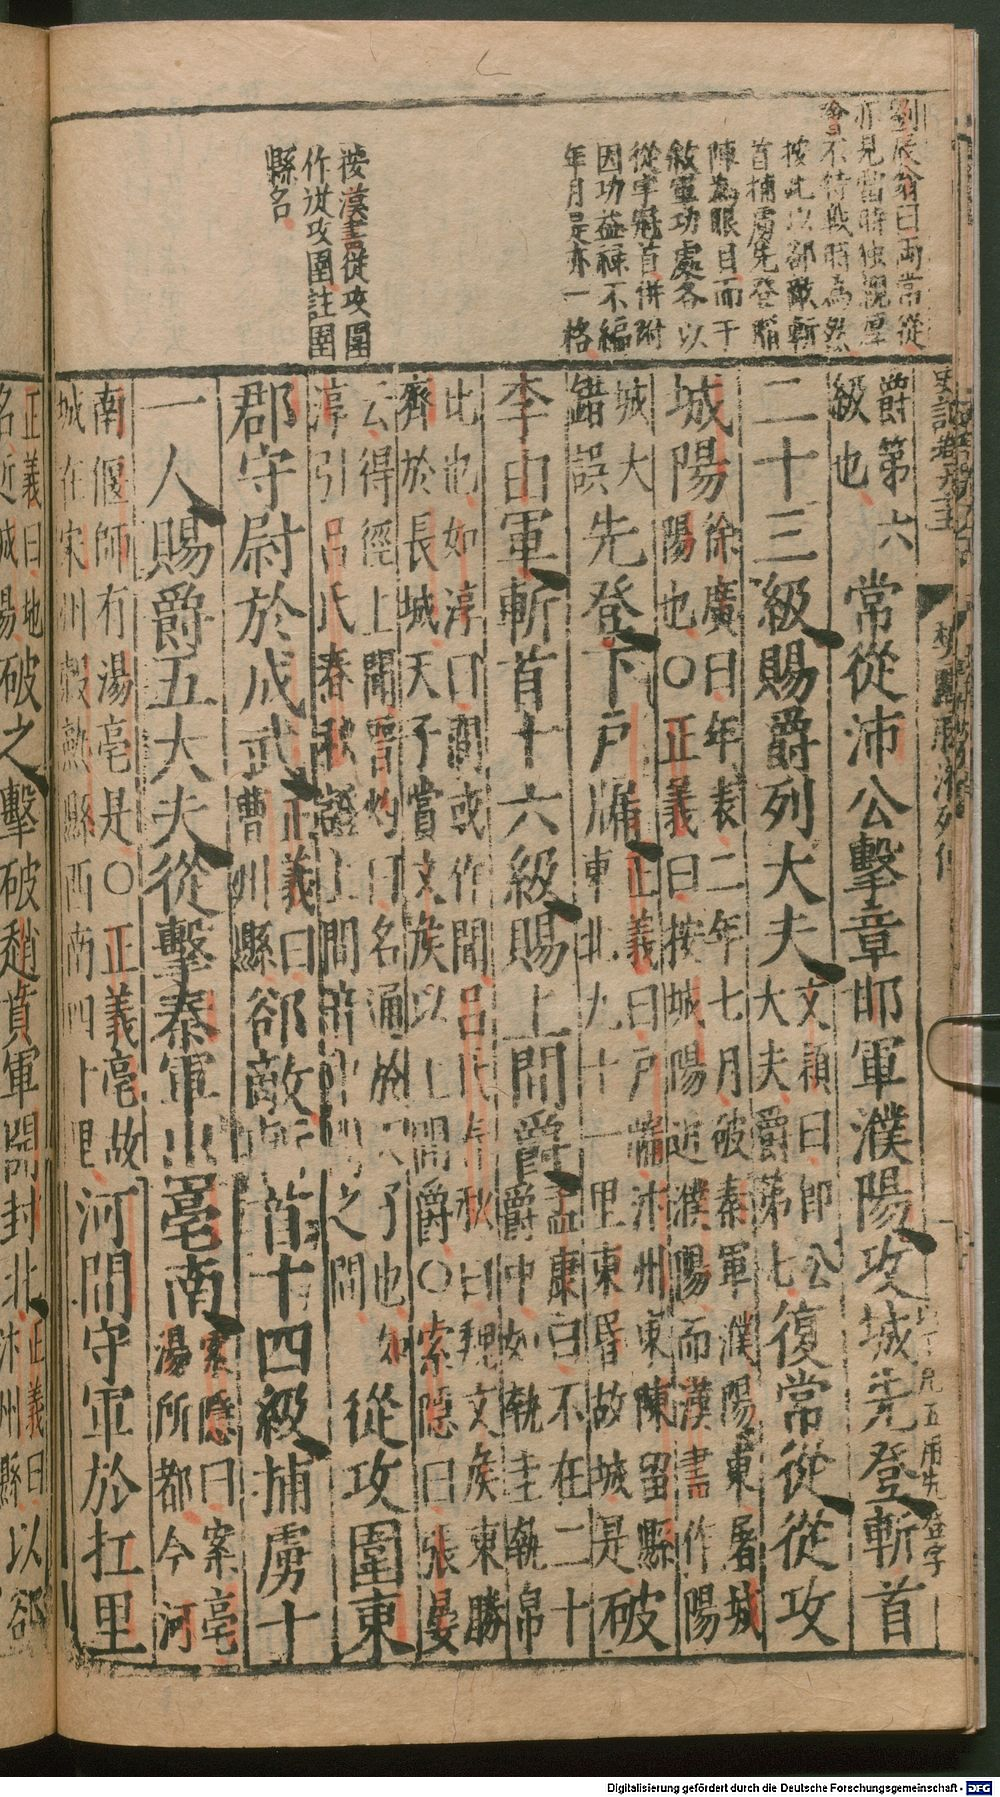 劉辰翁曰兩常從
亦見當時独親厚
會不待戰時為然
按此以郤敵斬
首捕虜先登陷
陳為眼目而于
敘軍功處各以
從字冠首併附
因功益祿不編
年月是亦一格
按漢書從攻圍
作從攻圉註圉
縣名
爵第六
級也常從沛公擊章邯軍濮陽攻城先登斬首
二十三級賜爵列大夫文穎曰即公
大夫爵第七復常從從攻
城陽徐廣曰年表二年七月破秦軍濮陽東屠城
陽也〇正義曰按城陽近濮陽而漢書作陽
城大
錯誤先登下戶牖正義曰戶牖汴州東陳留縣
東北九十一里東昏故城是破
李由軍斬首十六級賜上間爵孟康曰不在二十
爵中如執圭執帛
比也如淳曰間或作聞呂氏春秋曰魏文侯東勝
齊於長城天子賞文侯以上聞爵〇索隱曰張晏
云得徑上聞晉灼曰名通於天子也如
淳引呂氏春秋證上聞
之間從攻圍東
郡守尉於成武正義曰
曹州縣郤敵斬首十四級捕虜十
一人賜爵五大夫從擊秦軍出亳南索隱曰案亳
湯所都今河
南偃師有湯亳是〇正義亳故
城在宋州穀熟縣西南四十里河間守軍於扛里
正義曰地
名近城陽破之擊破趙賁軍開封北正義曰
汴州縣以郤